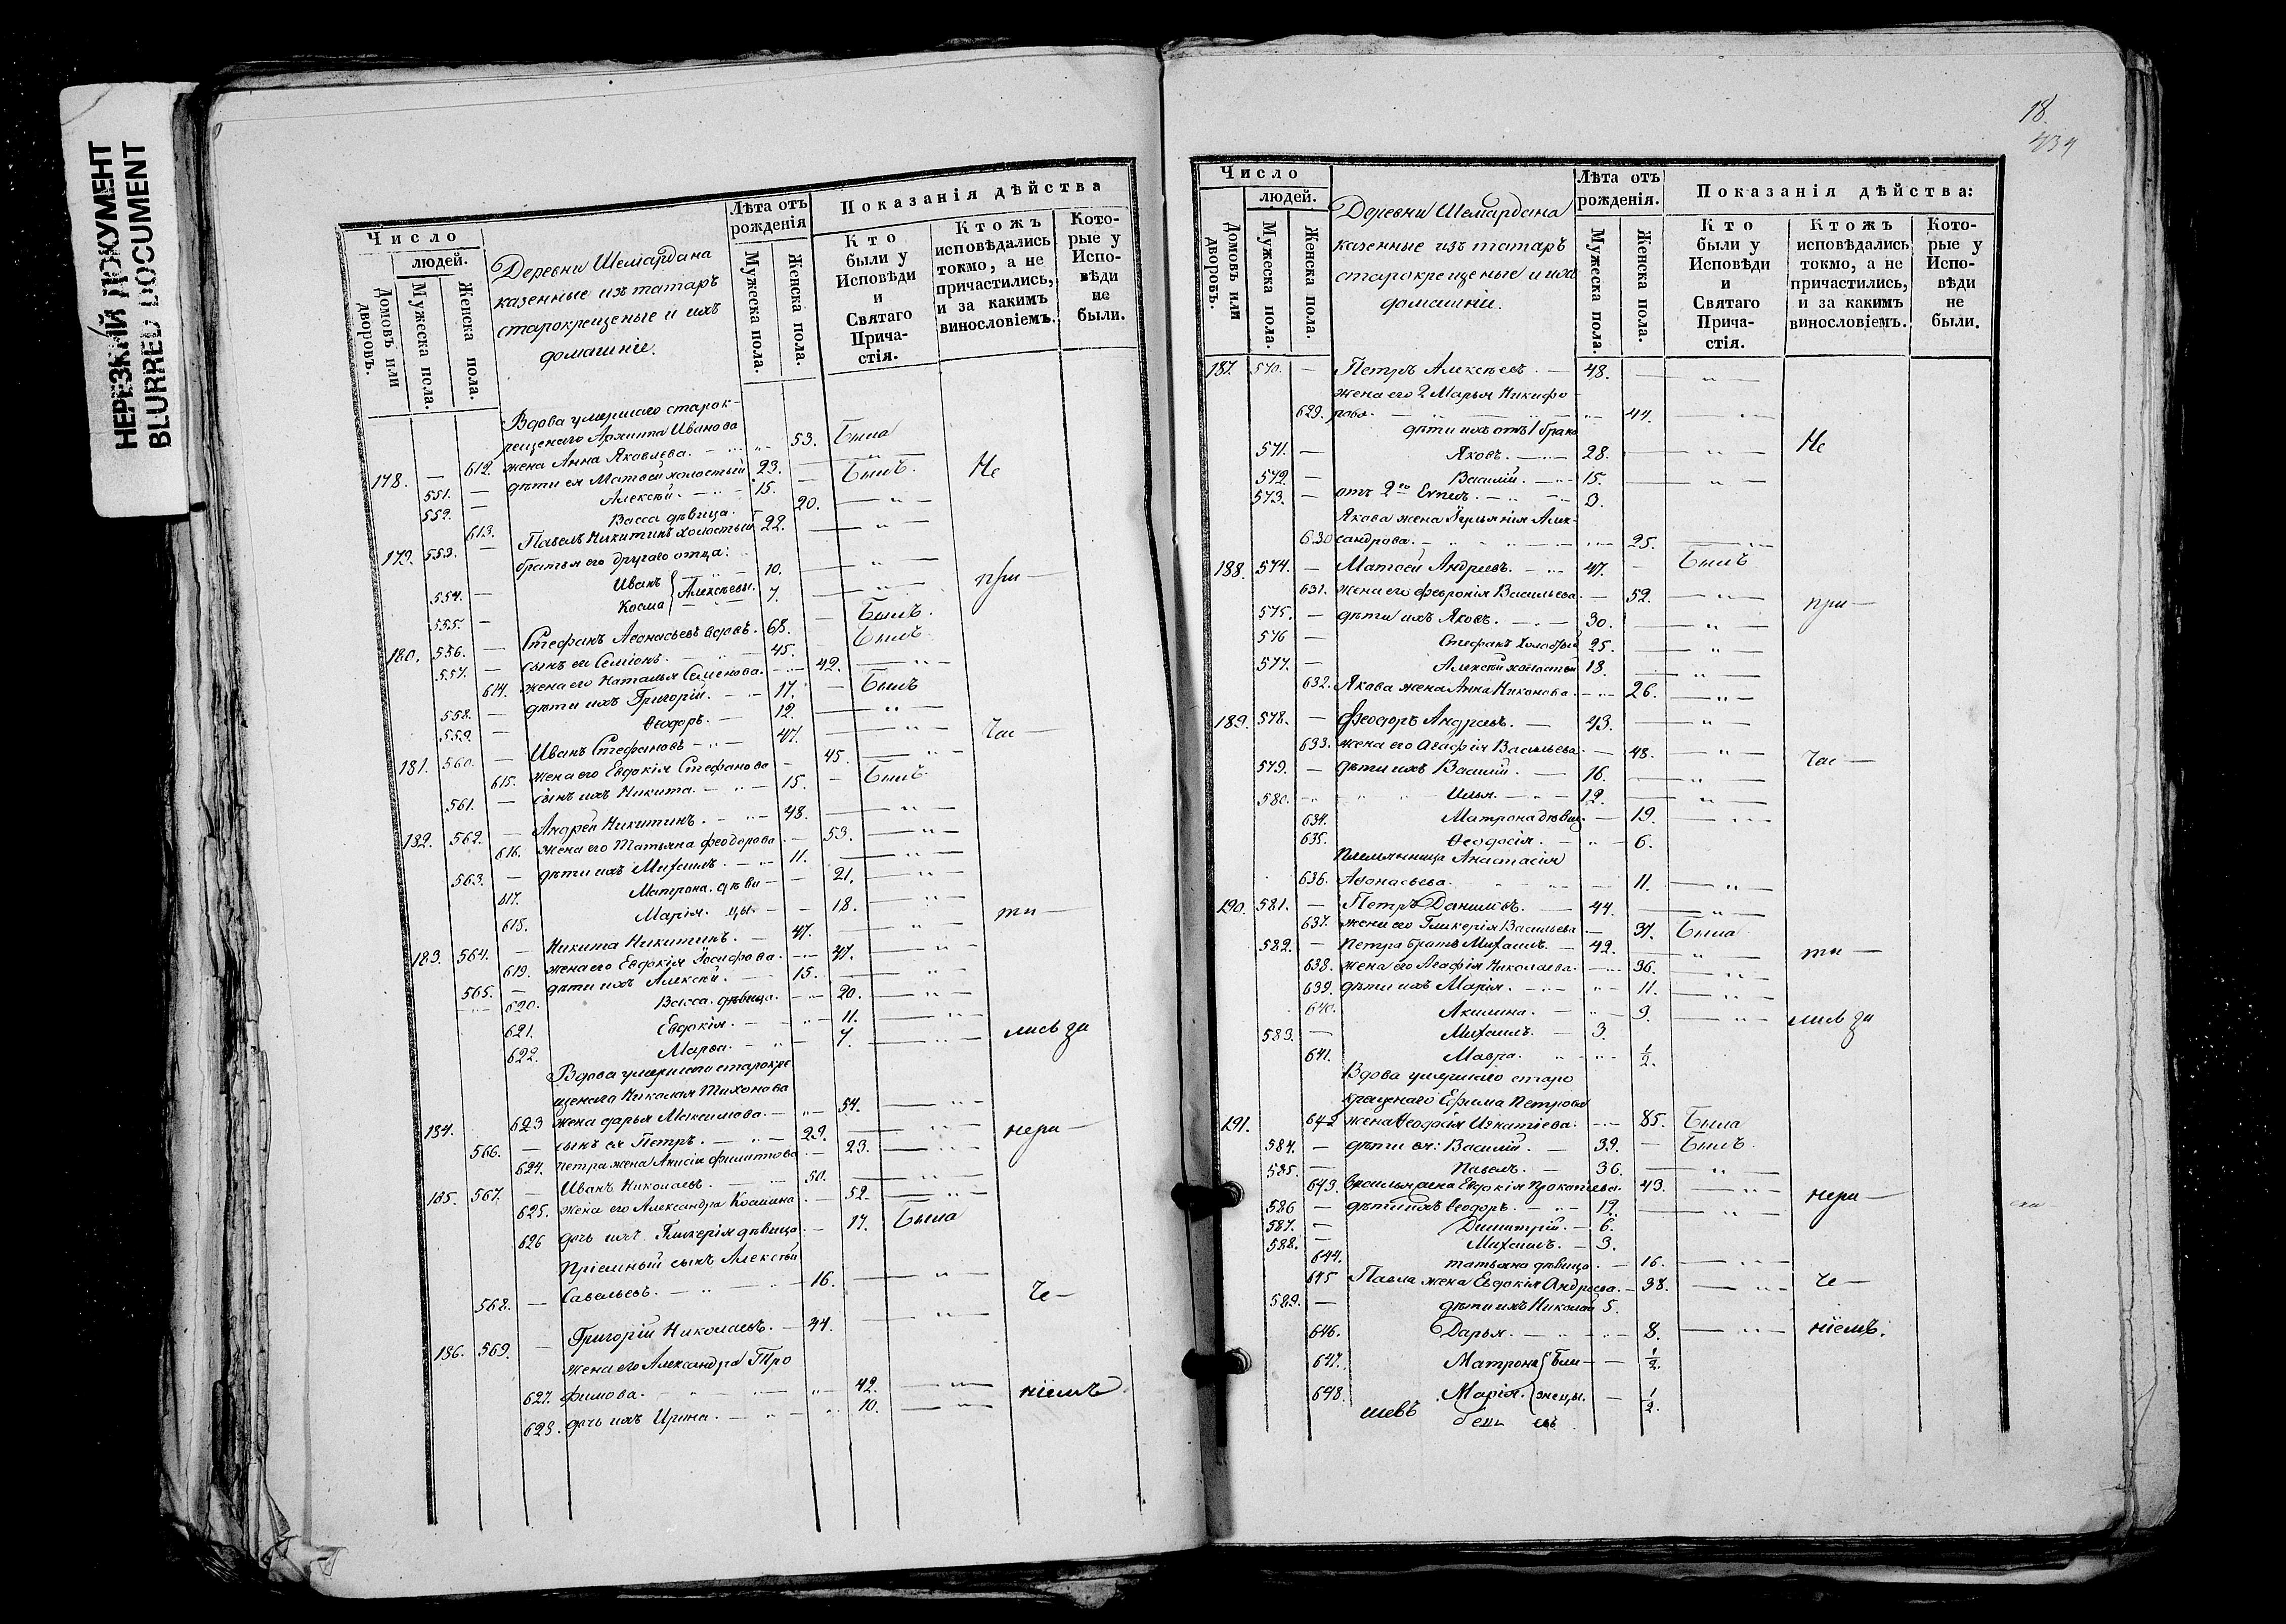 НЕРЕЗКИЙ ДОКУМЕНТ
BLURRED DOCUMENT
Число
людей.
Домовъ или дворовъ.
Мужеска пола.
Женска пола.
Деревни Шемардана
казенные изъ татаръ
старокрещеные и ихъ
домашніе.
Лѣта отъ рожденія
Мужеска пола.
Женска пола.
Показанія дѣйства
Кто были у Исповѣди и Святаго Прича-стія.
Ктожъ исповѣдались токмо, а не причастились, и за какимъ винословіемъ.
Кото-рые у Испо-вѣди не были.
Вдова умершаго старок-
рещенаго Архипа Иванова
178. — 612. жена Анна Яковлева. — 53. Была
551. — дѣти ея Матвей холостый 23. — Былъ. Не
552. — Алексѣй. — 15.
613. Васса дѣвица. 20. — „ —
179. 553. — Павелъ Никитинъ холостый 22. — „ —
братья его другаго отца:
554. — Иванъ 10. — „ — при —
555. — Косма } Алексѣевы. 7. — „ —
180. 556. — Стефанъ Афонасьевъ вдовъ. 68. — Былъ.
557. — сынъ ея Семіонъ. 45. Былъ
614. жена его Наталья Семенова. — 42. — „ —
558. — дѣти ихъ Григорій. — 17. — Былъ
559. — Ѳеодоръ. — 12. — „ —
181. 560. — Иванъ Стефановъ — 47. — „ — Час —
615. жена его Евдокія Стефанова — 45. — „ —
561. — сынъ ихъ Никита. — 15. — Былъ
182. 562. — Андрей Никитинъ. — 48. — „ —
616. жена его Татьяна Феодорова — 53. — „ —
563. — дѣти ихъ Михаилъ. — 11. — „ —
617. Матрона. дѣви — 21. — „ —
618. Марія. цы. — 18. — „ — ти —
183. 564. — Никита Никитинъ. — 47. — „ —
619. жена его Евдокія Іосифова. — 47. — „ —
565. — дѣти ихъ Алексѣй. — 15. — „ —
620. Васса. дѣвица. — 20. — „ —
621. Евдокія. — 11. — „ —
622. Марѳа. — 7. — „ — лись за
Вдова умершаго старокре
щенаго Николая Тихонова
184. 623 жена дарья Максимова. — 54. — „ —
566. — сынъ ея Петръ. — 29. — „ — нера —
624. Петра жена Анисія Филиппова — 23. — „ —
185. 567. — Иванъ Николаевъ. — 50. — „ —
625. жена его Александра Космина — 52. — „ —
626 дочь ихъ Гликерія дѣвица — 17. Была
Пріемный сынъ Алексѣй
568. — Савельевъ. — 16. — „ — Че —
186. 569. — Григорій Николаевъ. — 44. — „ —
жена его Александра Тро
627. фимова. — 42. — „ — ніемъ
628. дочь ихъ Ирина. — 10. — „ —
18
434
Число
людей.
Домовъ или дворовъ.
Мужеска пола.
Женска пола.
Деревни Шемардана
казенные изъ татаръ
старокрещеные и ихъ
домашніи.
Лѣта отъ рожденія.
Мужеска пола.
Женска пола.
Показанія дѣйства:
Кто были у Исповѣди и Святаго Прича-стія.
Ктожъ исповѣдались токмо, а не причастились, и за какимъ винословіемъ.
Кото-рые у Испо-вѣди не были.
187. 570. — Петръ Алексѣевъ. — 48. — „ —
жена его 2 Марья Никифо
629. рова. — 44. — „ —
дѣти ихъ отъ 1 брака
571. — Яковъ. — 28. — „ — Не
572. — Василій. — 15. — „ —
573. — отъ 2го — 3.
Якова жена Алек-
630 сандрова. — 25. — „ —
188. 574. — Матвей Андреевъ. — 47. — Былъ
631. жена его Февронія Васильева. — 52. — „ — при —
575. — дѣти ихъ Яковъ. — 30. — „ —
576 — Стефанъ холостый 25. — „ —
577. — Алексѣй холостый 18. — „ —
632. Якова жена Анна Никонова. — 26. — „ —
189. 578. — Феодоръ Андреевъ. — 43. — „ —
633. жена его Агафія Васильева — 48. — „ — Час —
579. — дѣти ихъ Василій. — 16. — „ —
580. — Илья. — 12. — „ —
634. Матрона дѣвиц. — 19. — „ —
635. Ѳеодосія. — 6.
Племянница Анастасія
636. Афонасьева. — 11. — „ —
190. 581. — Петръ Даниловъ. — 44. — „ —
637. жена его Гликерія Васильева — 37. Была
582. — Петра братъ Михаилъ. — 42. — „ — ти —
638. жена его Агафія Николаева. — 36. — „ —
639. дѣти ихъ Марія. — 11. — „ —
640. Акилина. — 9. — „ — лись за
583. — Михаилъ. — 3.
641. Мавра. — 1/2.
Вдова умершаго старо
крещенаго Ефима Петрова
191. 642 жена Ѳеодосія Игнатіева. — 85. Была
584. — дѣти ея: Василій. — 39. — Былъ.
585. — Павелъ. — 36. — „ —
643. Василья жена Евдокія Прокопіева. 43. — „ — нера —
586 — дѣти ихъ Ѳеодоръ. — 12. — „ —
587. — Димитрій. — 6.
588. — Михаилъ. — 3.
644. татьяна дѣвица. — 16. — „ —
645 Павла жена Евдокія Андреева. — 38. — „ — Че —
589. — дѣти ихъ Николай 5.
646. Дарья. — 8. — „ — ніемъ.
647. Матрона { бли — 1/2.
648. Марія. { знецы. — 1/2.